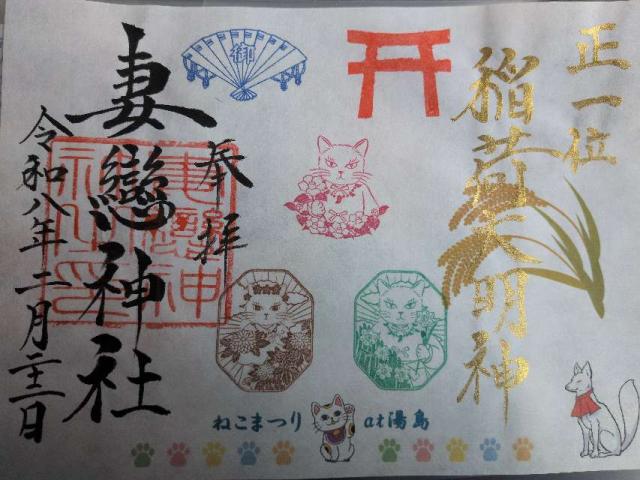 正一位
稲荷大明神
奉拝
妻戀神社
令和八年二月二十二日
妻戀神
社之印
ねこまつり at湯島